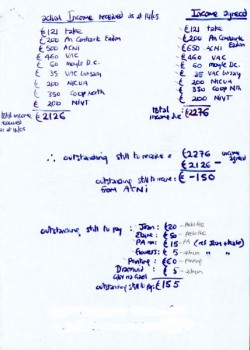 actual Income received as at 14/05
£121 take
£200 An Comhairle Ealaion
£500 ACNI
£460 VAC
£60 Moyle D.C.
£35 VAC Lursary
£200 NICVA
£350 Coop North
£200 NIVT
total income received as at 14/05 £2126
Income agreed
£121 take
£200 An Comhairle Ealaion
£650 ACNI
£460 VAC
£60 Moyle DC.
£35 VAC Lursary
£200 NICVA
£350 Coop Nth
£200 NIVT
total income due £2276
∴ outstanding still to receive = £2276 income agreed
£2126 -
outstanding still to receive : £-150
from ACNI
outstanding still to pay : Joan: £20
£50
PA : £15 - PA
flowers: £5
Printing: £60 - Printing
£5
outstanding still to pay: £155